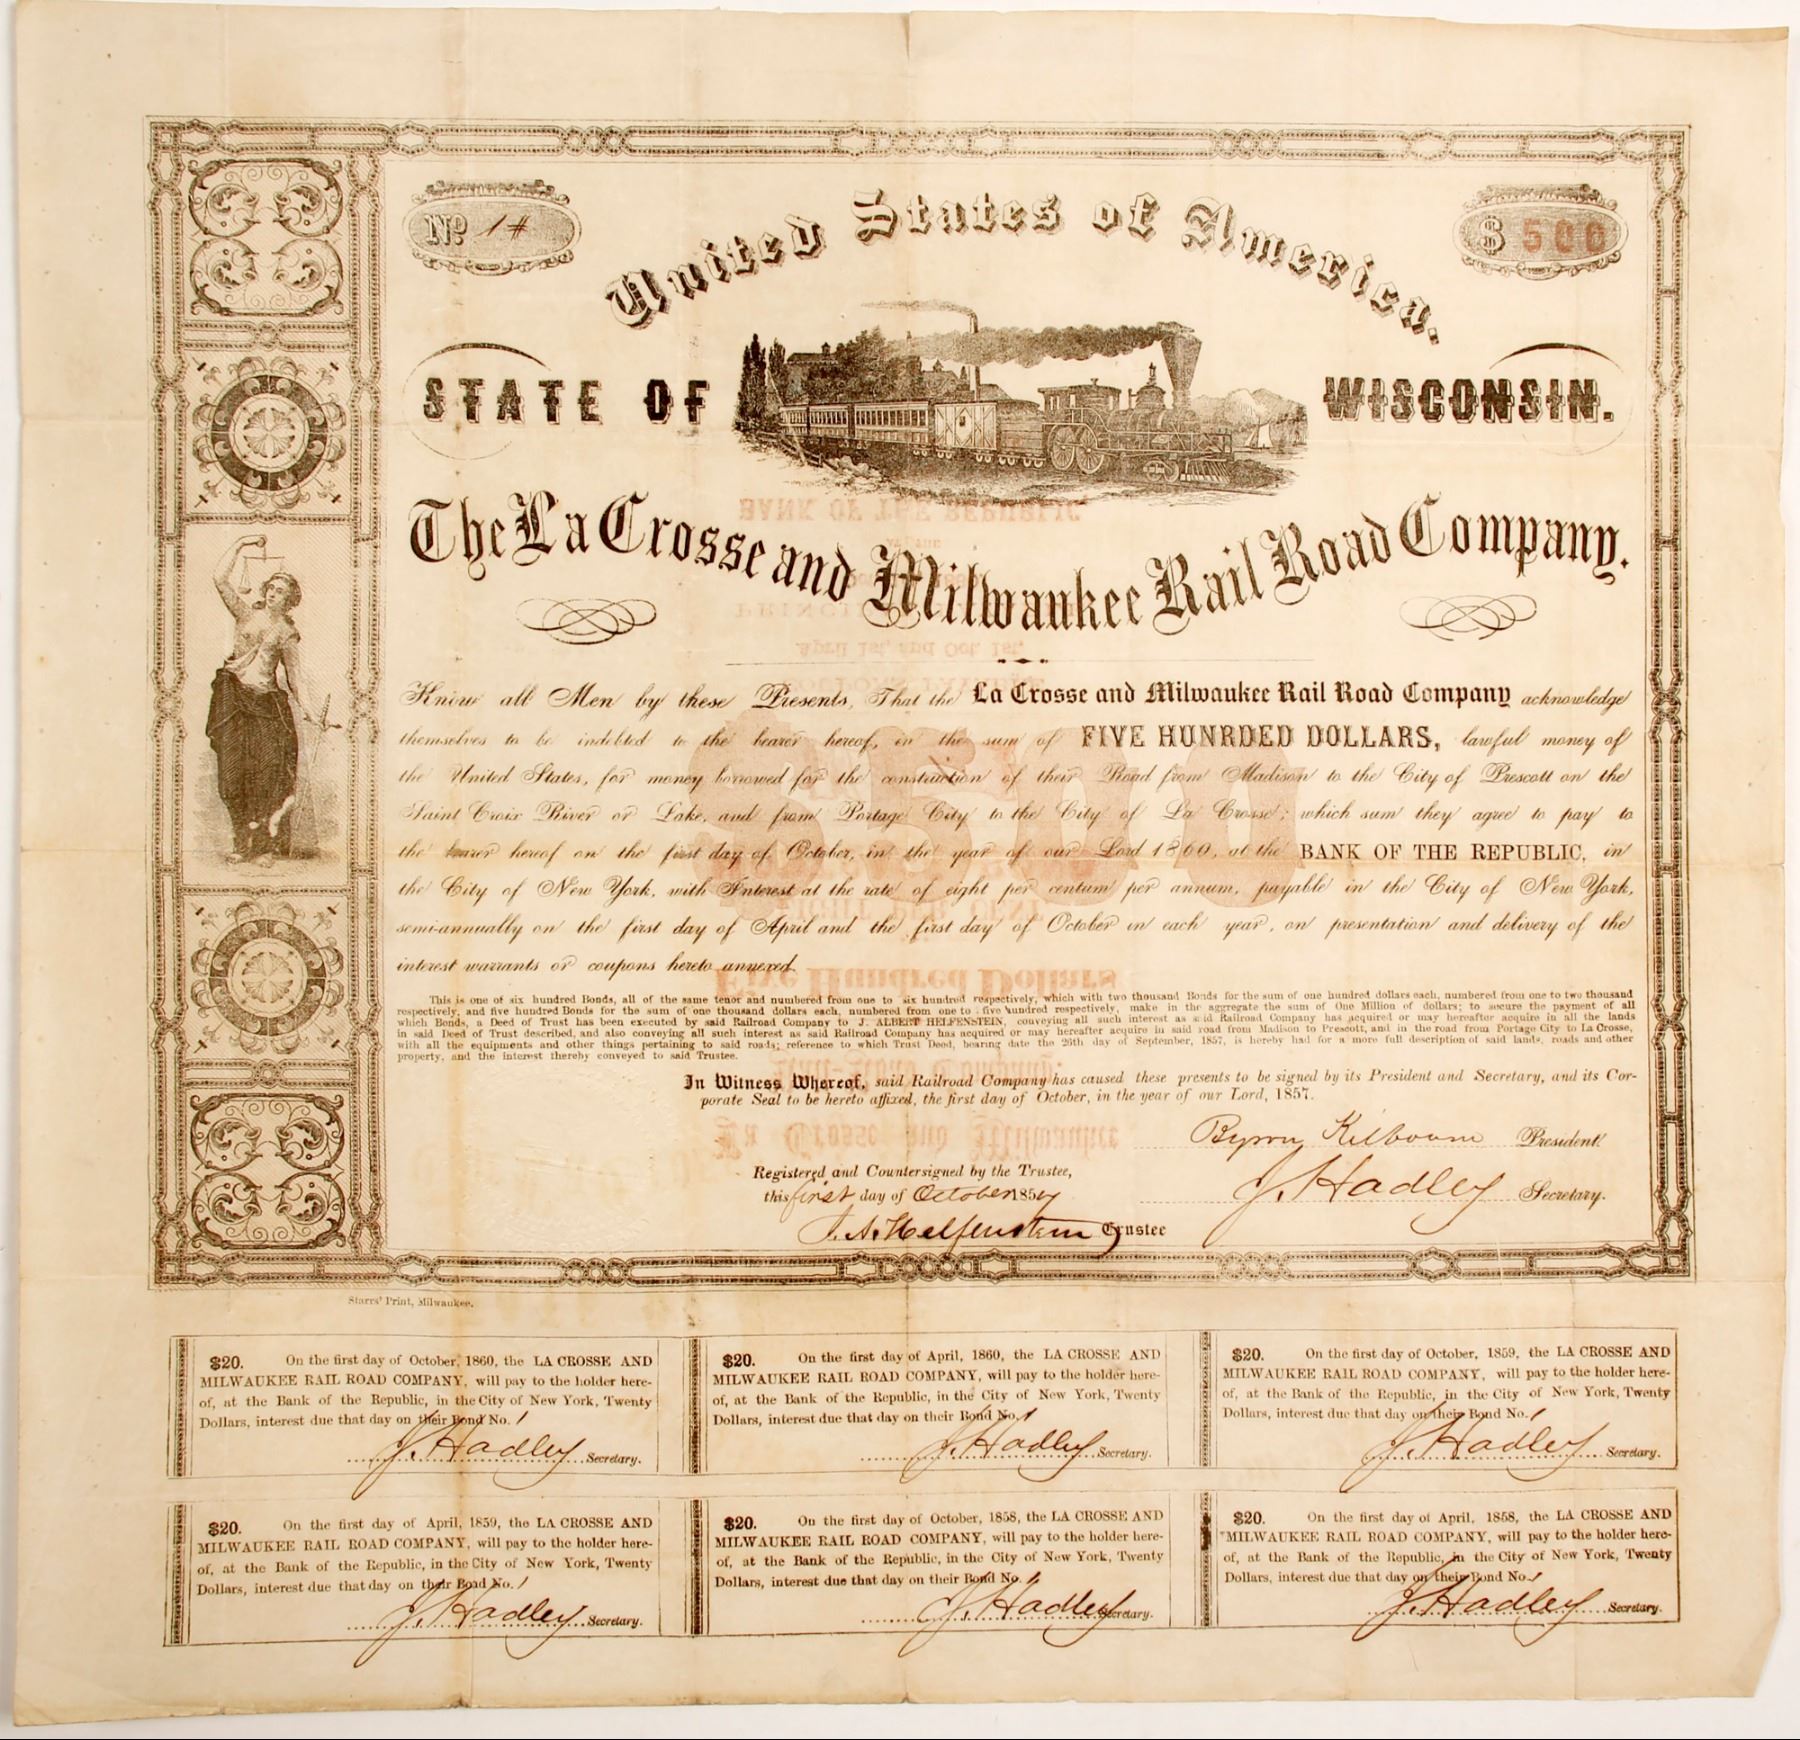 No. 1#
$ 500
United States of America.
STATE OF WISCONSIN.
The La Crosse and Milwaukee Rail Road Company.
Know all Men by these Presents, That the La Crosse and Milwaukee Rail Road Company acknowledge
themselves to be indebted to the bearer hereof, in the sum of FIVE HUNRDED DOLLARS, lawful money of
the United States, for money borrowed for the construction of their Road from Madison to the City of Prescott on the
Saint Croix River or Lake, and from Portage City to the City of La Crosse; which sum they agree to pay to
the bearer hereof on the first day of October, in the year of our Lord 1860, at the BANK OF THE REPUBLIC, in
the City of New York, with Interest at the rate of eight per centum per annum, payable in the City of New York,
semi-annually on the first day of April and the first day of October in each year, on presentation and delivery of the
interest warrants or coupons hereto annexed.
This is one of six hundred Bonds, all of the same tenor and numbered from one to six hundred respectively, which with two thousand Bonds for the sum of one hundred dollars each, numbered from one to two thousand
respectively, and five hundred Bonds for the sum of one thousand dollars each, numbered from one to five hundred respectively, make in the aggregate the sum of One Million of dollars; to secure the payment of all
which Bonds, a Deed of Trust has been executed by said Railroad Company to J. ALBERT HELFENSTEIN, conveying all such interest as said Railroad Company has acquired or may hereafter acquire in all the lands
in said Deed of Trust described, and also conveying all such interest as said Railroad Company has acquired or may hereafter acquire in said road from Madison to Prescott, and in the road from Portage City to La Crosse,
with all the equipments and other things pertaining to said roads; reference to which Trust Deed, bearing date the 26th day of September, 1857, is hereby had for a more full description of said lands, roads and other
property, and the interest thereby conveyed to said Trustee.
In Witness Whereof, said Railroad Company has caused these presents to be signed by its President and Secretary, and its Cor-
porate Seal to be hereto affixed, the first day of October, in the year of our Lord, 1857.
Byron Kilbourn President.
Registered and Countersigned by the Trustee,
this first day of October 1857
J. Hadley Secretary.
J. A. Helfenstein Trustee
Starrs' Print, Milwaukee.
$20. On the first day of October, 1860, the LA CROSSE AND
MILWAUKEE RAIL ROAD COMPANY, will pay to the holder here-
of, at the Bank of the Republic, in the City of New York, Twenty
Dollars, interest due that day on their Bond No. 1
J. Hadley Secretary.
$20. On the first day of April, 1860, the LA CROSSE AND
MILWAUKEE RAIL ROAD COMPANY, will pay to the holder here-
of, at the Bank of the Republic, in the City of New York, Twenty
Dollars, interest due that day on their Bond No. 1
J. Hadley Secretary.
$20. On the first day of October, 1859, the LA CROSSE AND
MILWAUKEE RAIL ROAD COMPANY, will pay to the holder here-
of, at the Bank of the Republic, in the City of New York, Twenty
Dollars, interest due that day on their Bond No. 1
J. Hadley Secretary.
$20. On the first day of April, 1859, the LA CROSSE AND
MILWAUKEE RAIL ROAD COMPANY, will pay to the holder here-
of, at the Bank of the Republic, in the City of New York, Twenty
Dollars, interest due that day on their Bond No. 1
J. Hadley Secretary.
$20. On the first day of October, 1858, the LA CROSSE AND
MILWAUKEE RAIL ROAD COMPANY, will pay to the holder here-
of, at the Bank of the Republic, in the City of New York, Twenty
Dollars, interest due that day on their Bond No. 1
J. Hadley Secretary.
$20. On the first day of April, 1858, the LA CROSSE AND
MILWAUKEE RAIL ROAD COMPANY, will pay to the holder here-
of, at the Bank of the Republic, in the City of New York, Twenty
Dollars, interest due that day on their Bond No. 1
J. Hadley Secretary.